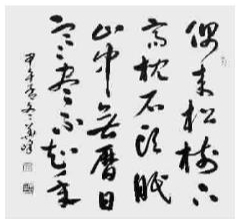 偶来松樹下
高枕石頭眠
山中無曆日
寒盡不知年
甲午